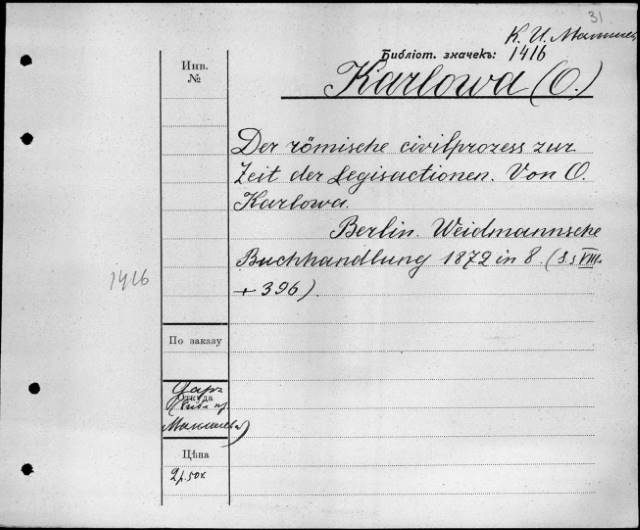 31
К. И.
Библіот. значекъ: 1416
Karlowa (O.)
Инв.
№
Der römische civilprozess zur
Zeit der Legisactionen. Von O.
Karlowa.
Berlin. Weidmannsche
Buchhandlung 1872 in 8. (SS VIII.
+ 396).
1416
По заказу
Откуда
Даръ
Цѣна
2 р. 50 к